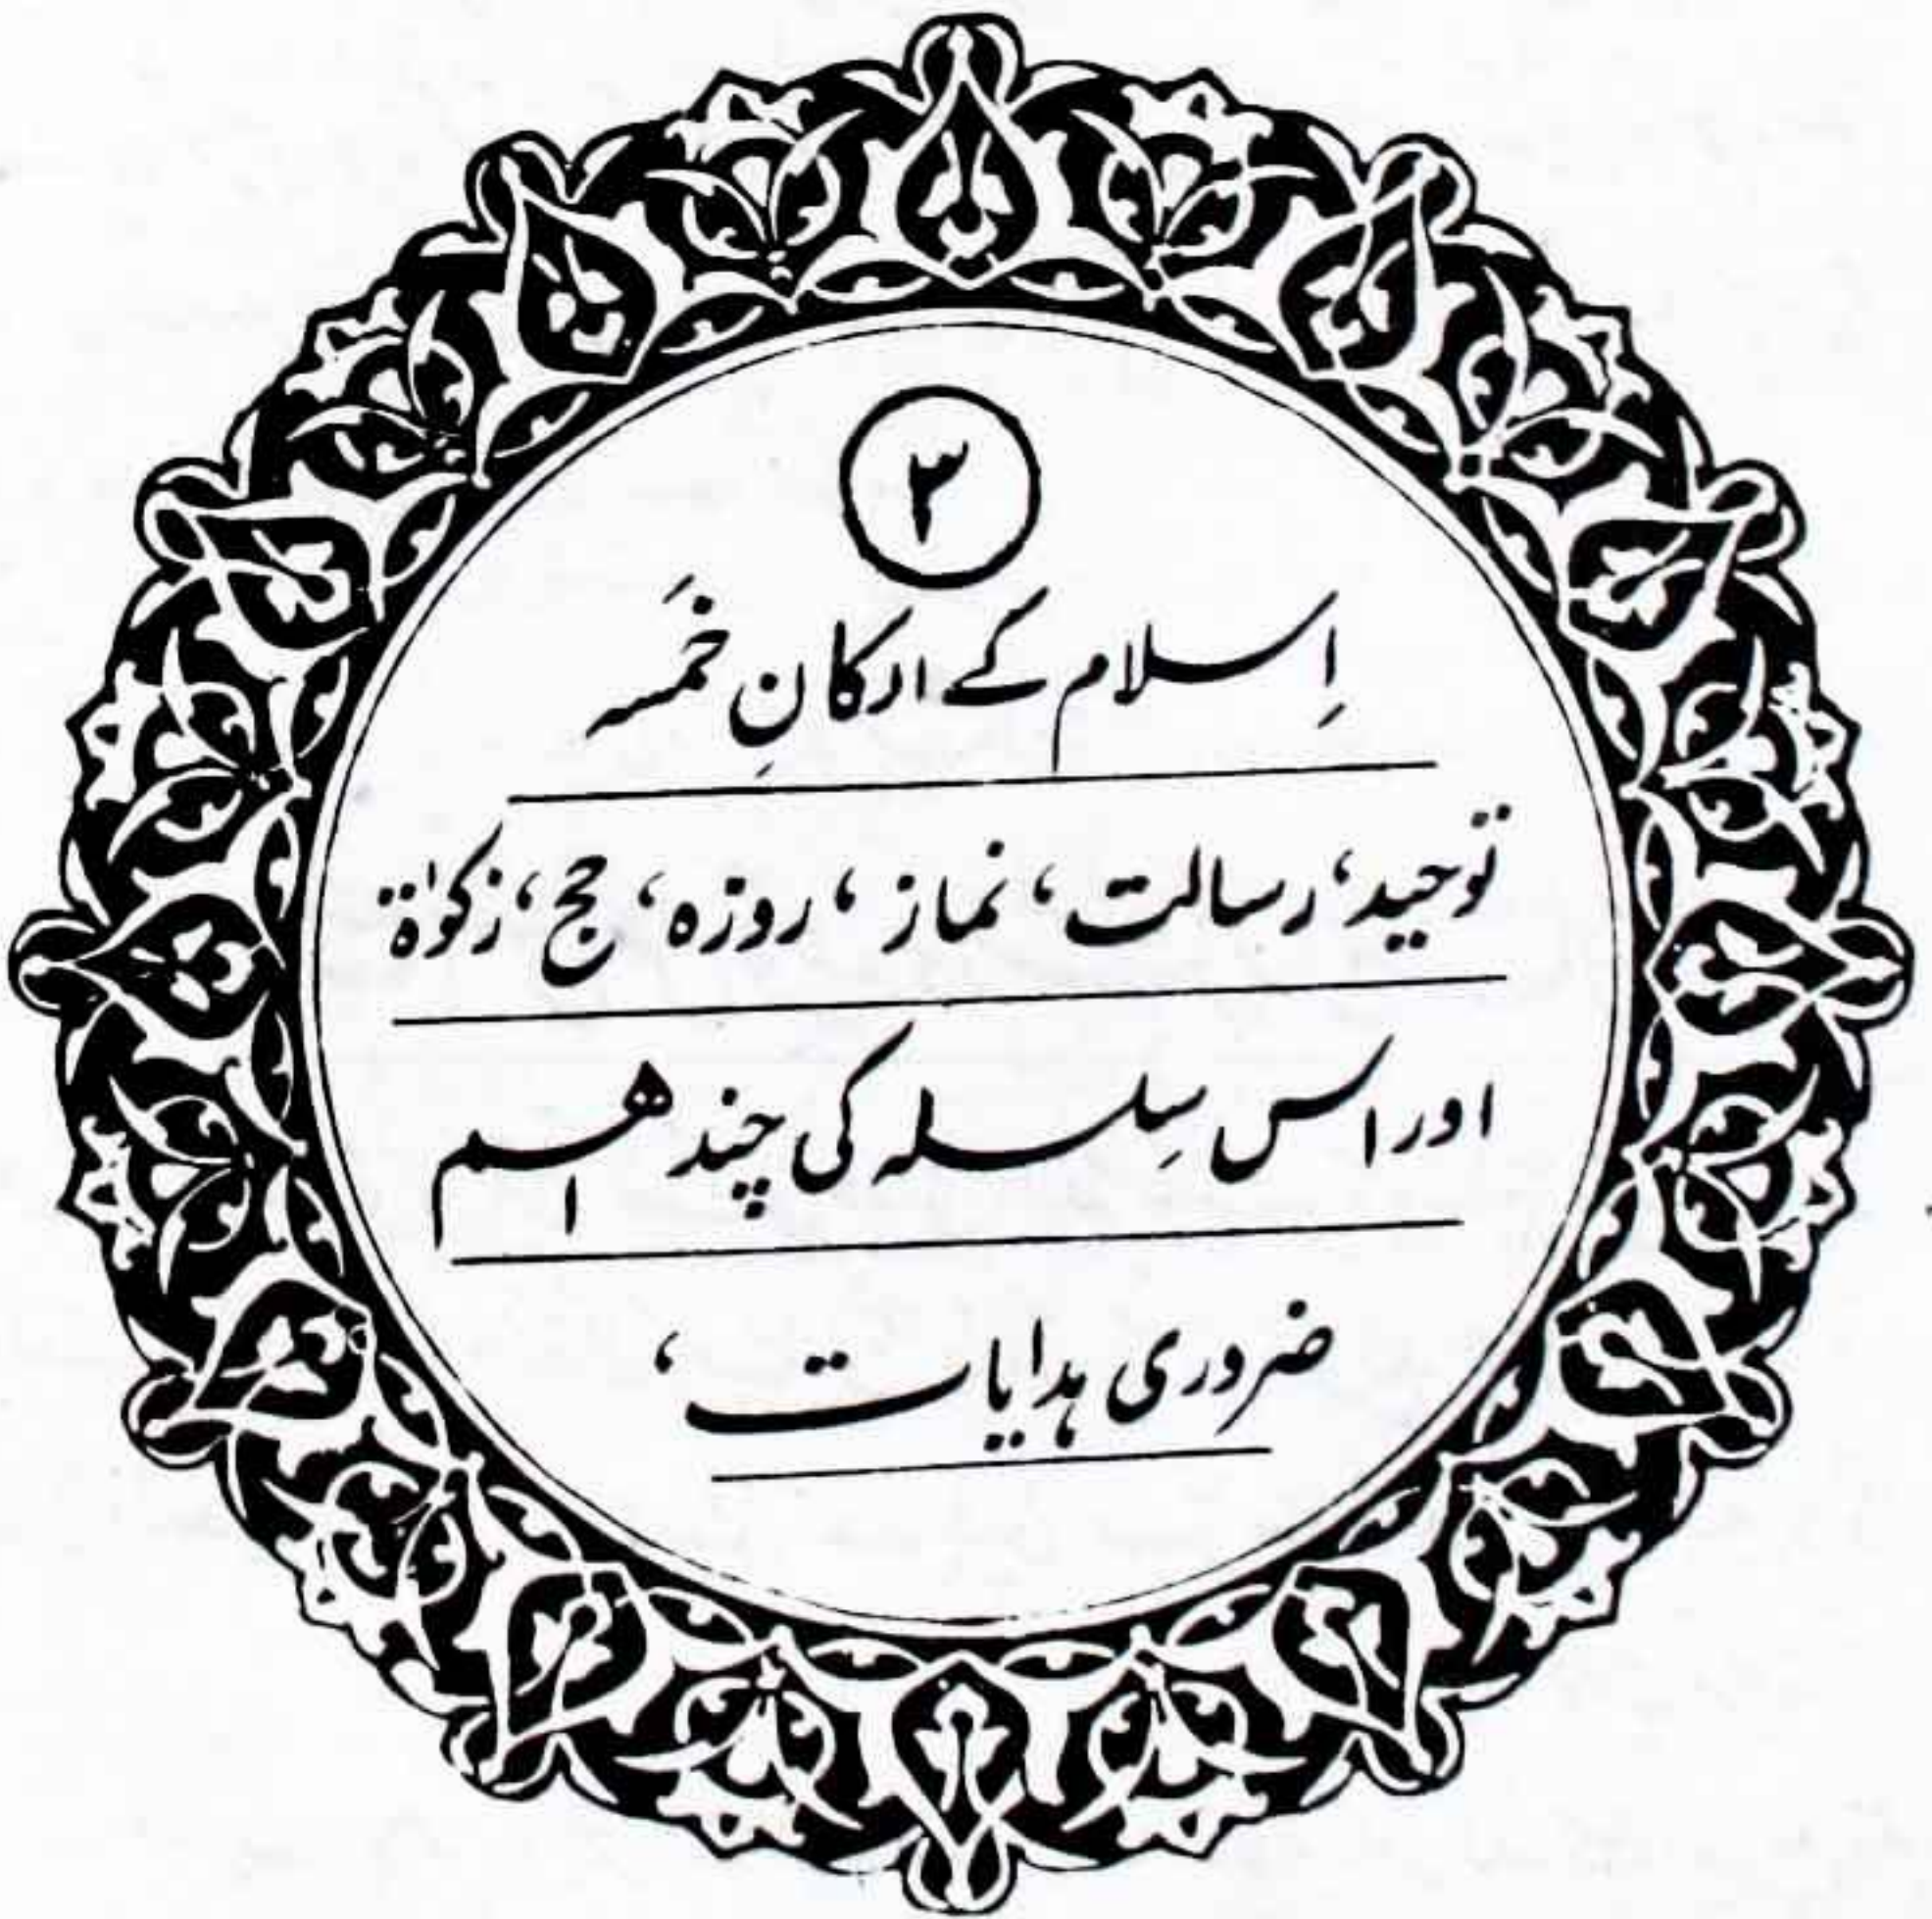 ۳
اِسلام کے ارکانِ خَمسہ
توحید، رسالت، نماز، روزہ، حج، زکوٰۃ
اور اس سِلسلہ کی چند اہم
ضروری ہدایات،